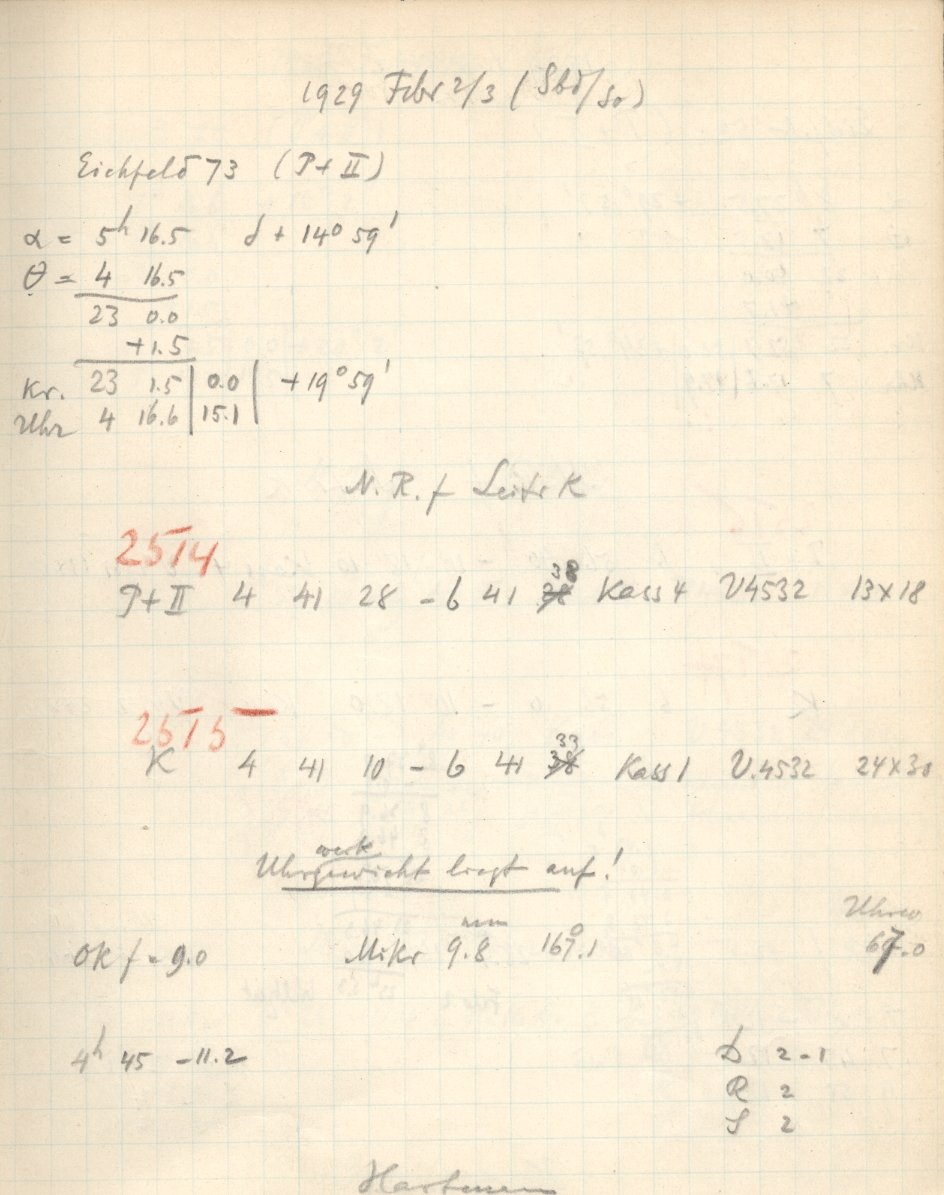 1929 Febr 2/3 (Sbd/So)
Eichfeld 73 (P+II)
α = 5h 16.5 δ + 14° 59'
θ = 4 16.5
23 0.0
+1.5
Kr. 23 1.5 | 0.0 | +19° 59'
Uhr 4 16.6 | 15.1 |
N. R. f Leitr K
2514
P+II 4 41 28 – 6 41 38 Kass 4 V4532 13×18
2515
K 4 41 10 – 6 41 33 Kass 1 V.4532 24×30
werk
Uhrgewicht liegt auf!
mm
OK f = 9.0 Mikr 9.8 167°.1 67.0
4h 45 –11.2
D 2-1
R 2
S 2